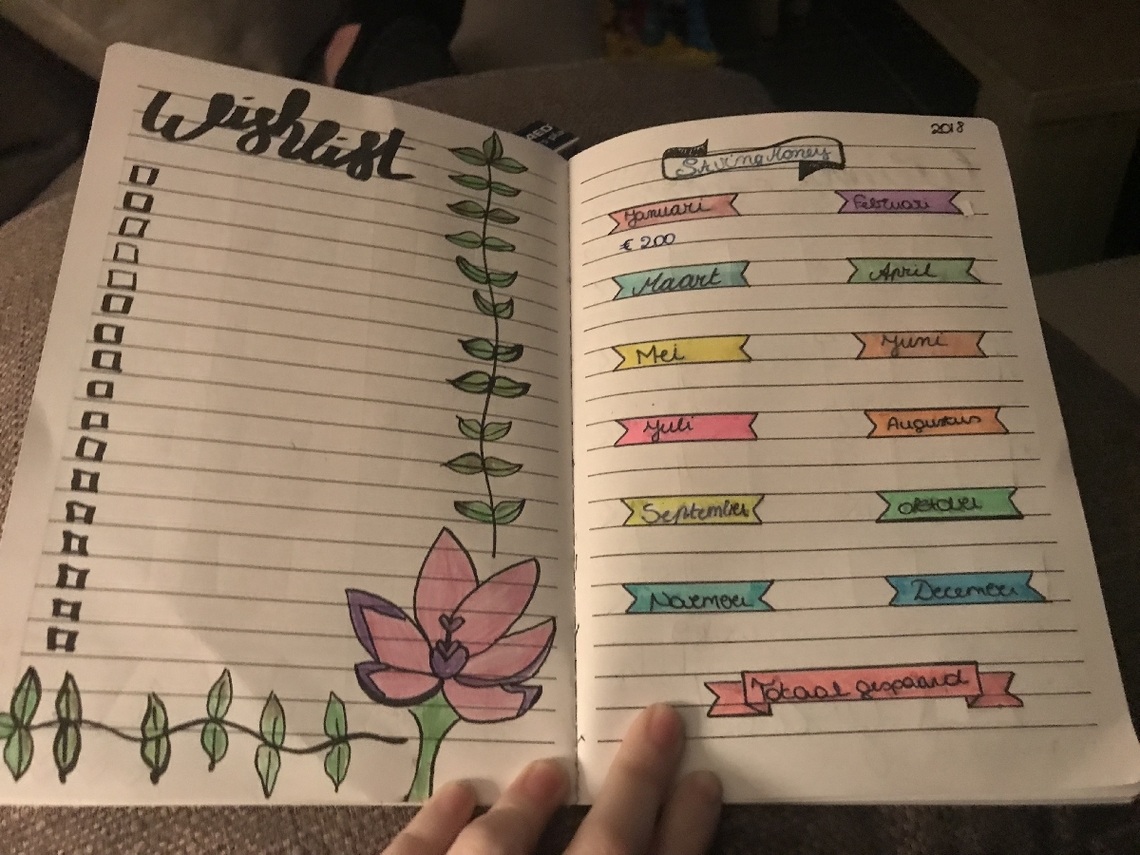 Wishlist
RED
2018
Saving Money
Januari
Februari
€ 200
Maart
April
Mei
Juni
Juli
Augustus
September
oktober
November
December
Totaal gespaard